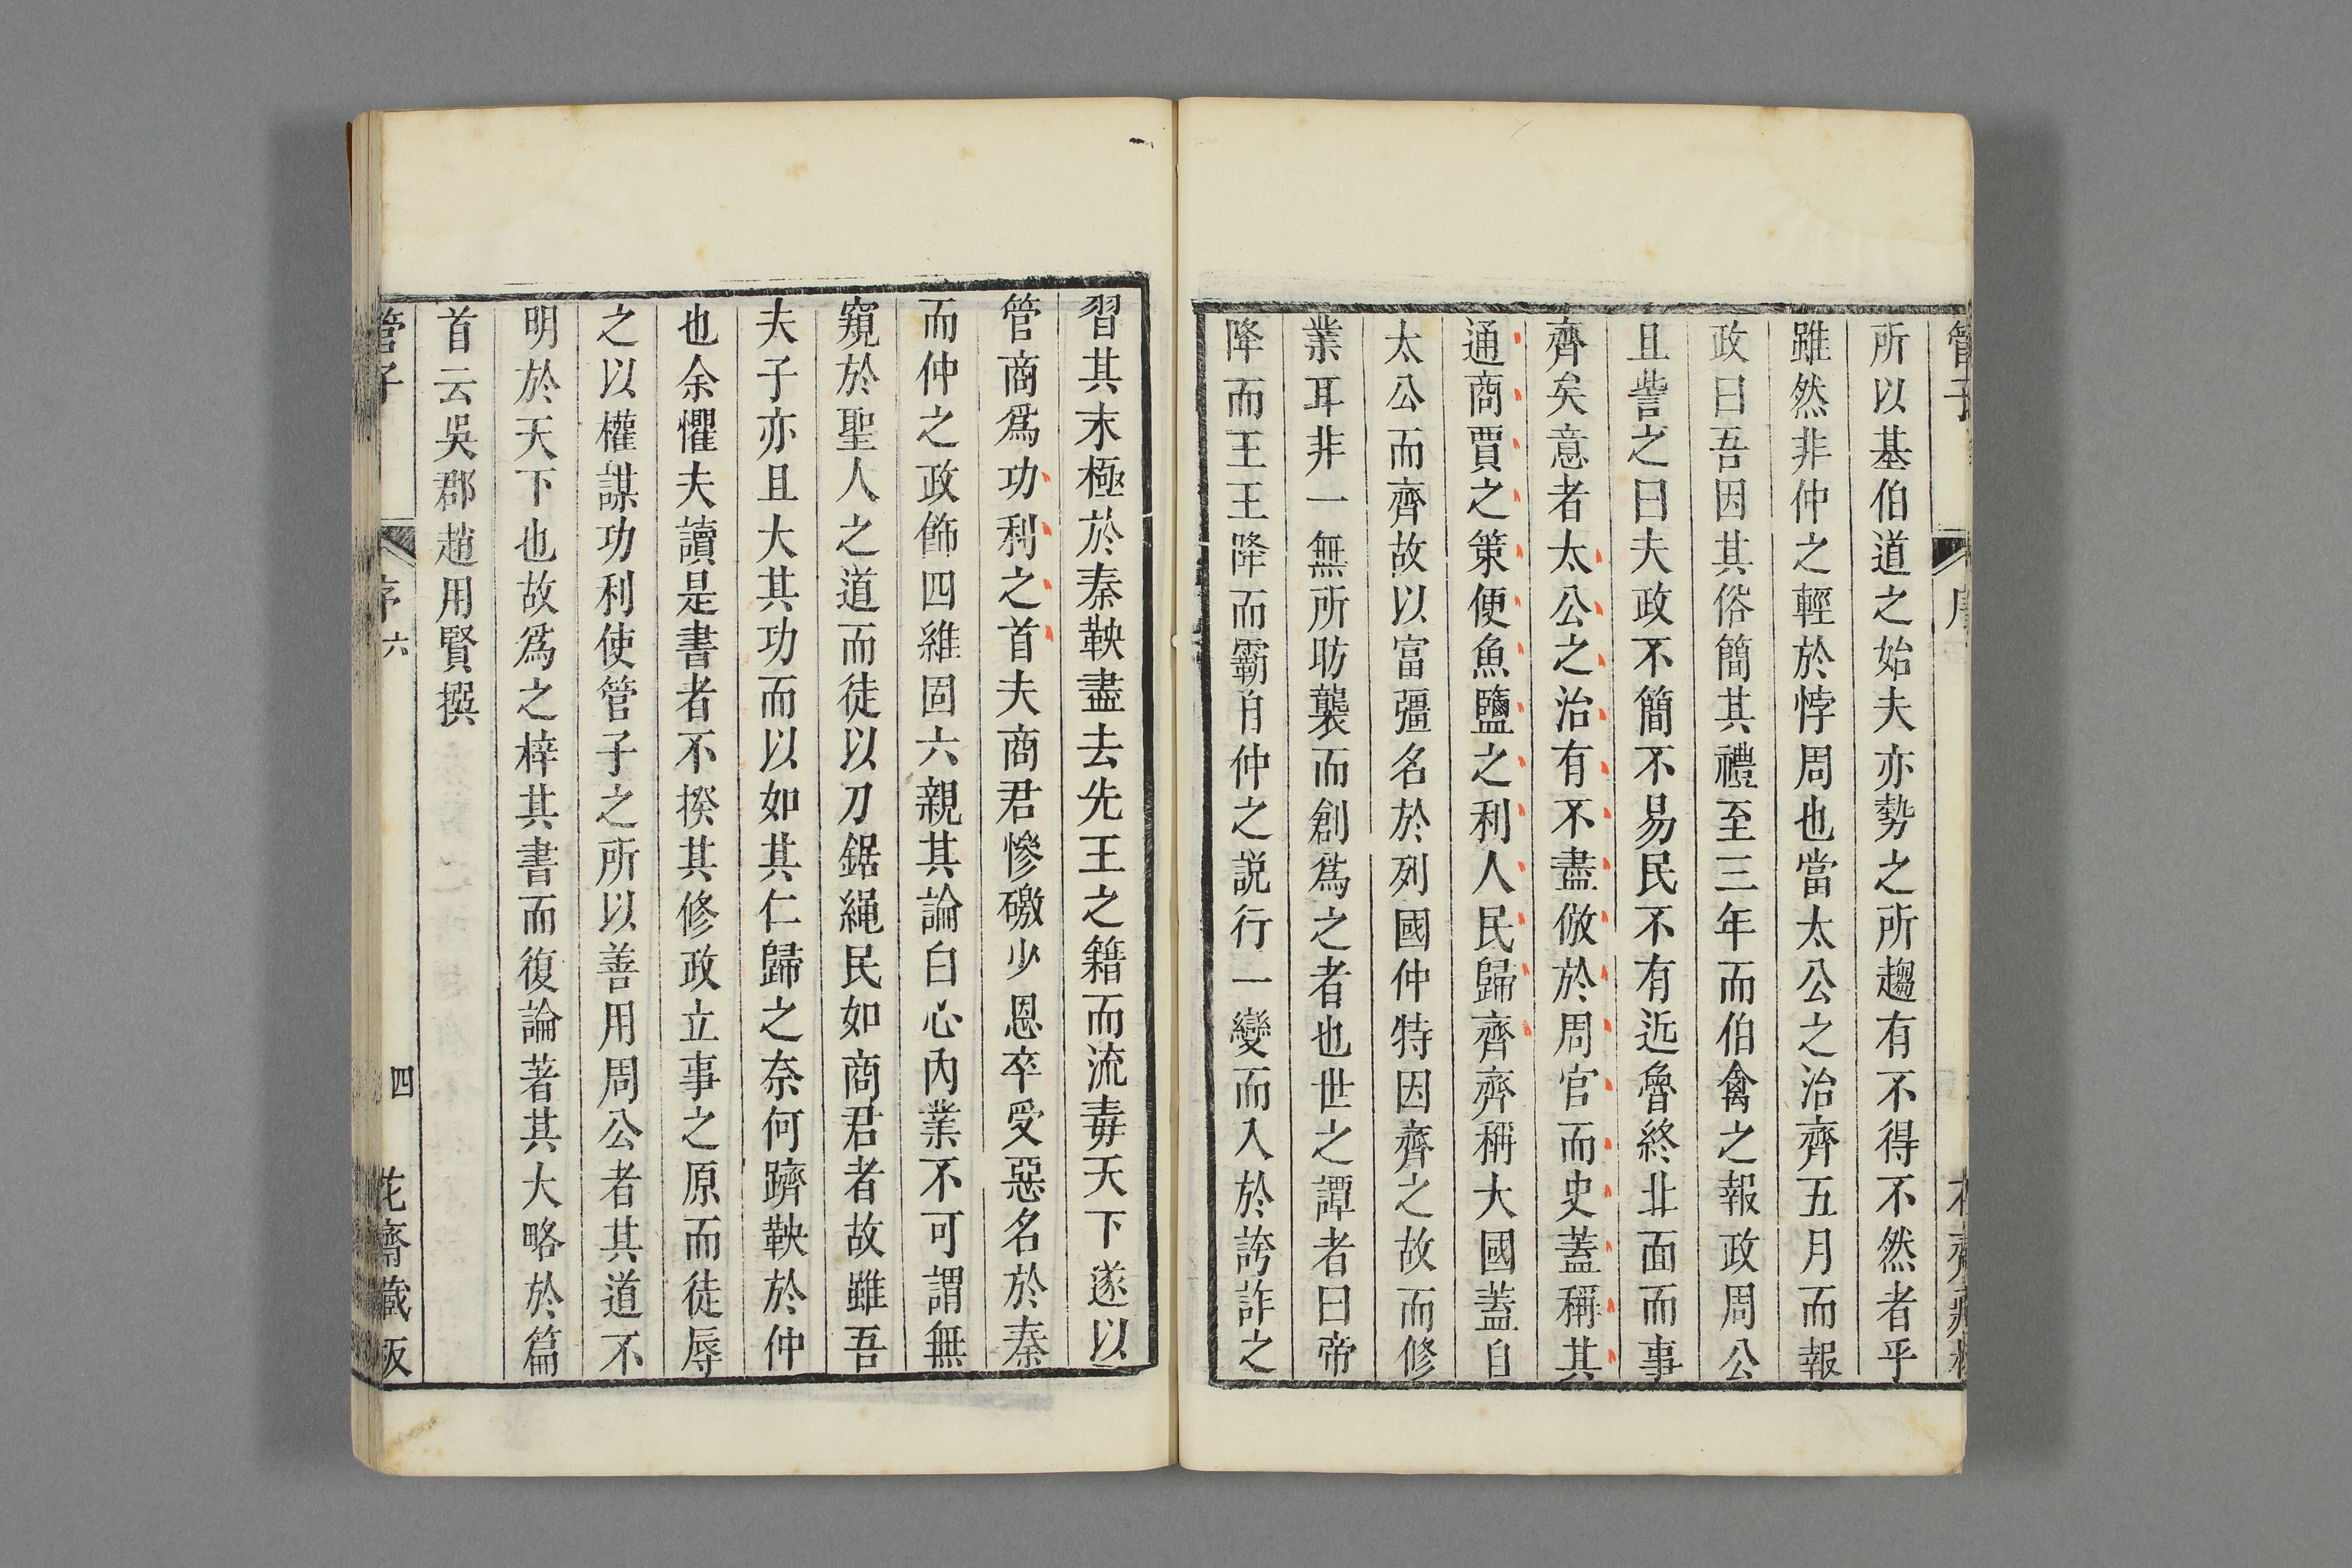 管子
序
所以基伯道之始夫亦勢之所趨有不得不然者乎
雖然非仲之輕於悖周也當太公之治齊五月而報
政曰吾因其俗簡其禮至三年而伯禽之報政周公
且訾之曰夫政不簡不易民不有近魯終北面而事
齊矣意者太公之治有不盡倣於周官而史蓋稱其
通商賈之策便魚鹽之利人民歸齊齊稱大國蓋自
太公而齊故以富彊名於列國仲特因齊之故而修
業耳非一無所昉襲而創爲之者也世之譚者曰帝
降而王王降而霸自仲之説行一變而入於誇詐之
習其末極於秦鞅盡去先王之籍而流毒天下遂以
管商爲功利之首夫商君慘礉少恩卒受惡名於秦
而仲之政飭四維固六親其論白心內業不可謂無
窺於聖人之道而徒以刀鋸繩民如商君者故雖吾
夫子亦且大其功而以如其仁歸之奈何躋鞅於仲
也余懼夫讀是書者不揆其修政立事之原而徒辱
之以權謀功利使管子之所以善用周公者其道不
明於天下也故爲之梓其書而復論著其大略於篇
首云吳郡趙用賢撰
管子
序六
四
花齋藏板